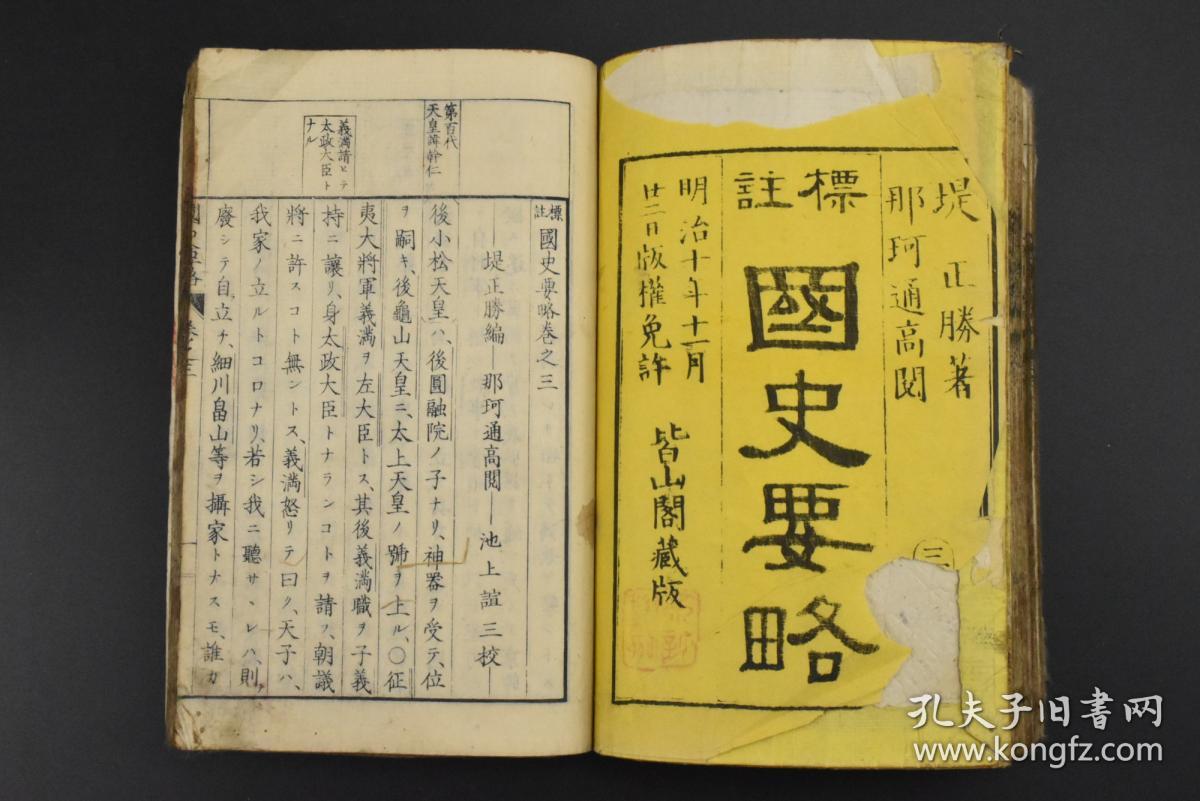 堤正勝著
那珂通高閱
標註
國史要略
三
明治十年十一月
廿二日版權免許
皆山閣藏版
第百代
天皇諱幹仁
義満請ヒテ
太政大臣ト
ナル
標註國史要略巻之三
堤正勝編 那珂通高閲 池上誼三校
後小松天皇ハ、後圓融院ノ子ナリ、神器ヲ受テ、位
ヲ嗣キ、後龜山天皇ニ、太上天皇ノ號ヲ上ル、〇征
夷大將軍義満ヲ左大臣トス、其後義満職ヲ子義
持ニ讓リ、身太政大臣トナランコトヲ請フ、朝議
將ニ許スコト無ントス、義満怒リテ曰ク、天子ハ、
我家ノ立ルトコロナリ、若シ我ニ聽サヽレハ、則
廢シテ自立チ、細川畠山等ヲ攝家トナスモ、誰カ
孔夫子旧书网
www.kongfz.com